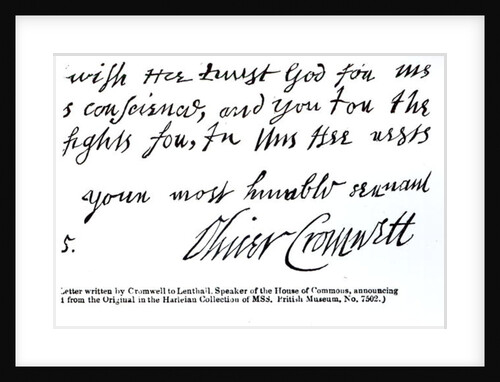 wish Hee trust God for the
s conscience, and you for the
fights for, In this Hee rests
your most humble servant
5. Oliver Cromwell
Letter written by Cromwell to Lenthall, Speaker of the House of Commons, announcing
l from the Original in the Harleian Collection of MSS. British Museum, No. 7502.)